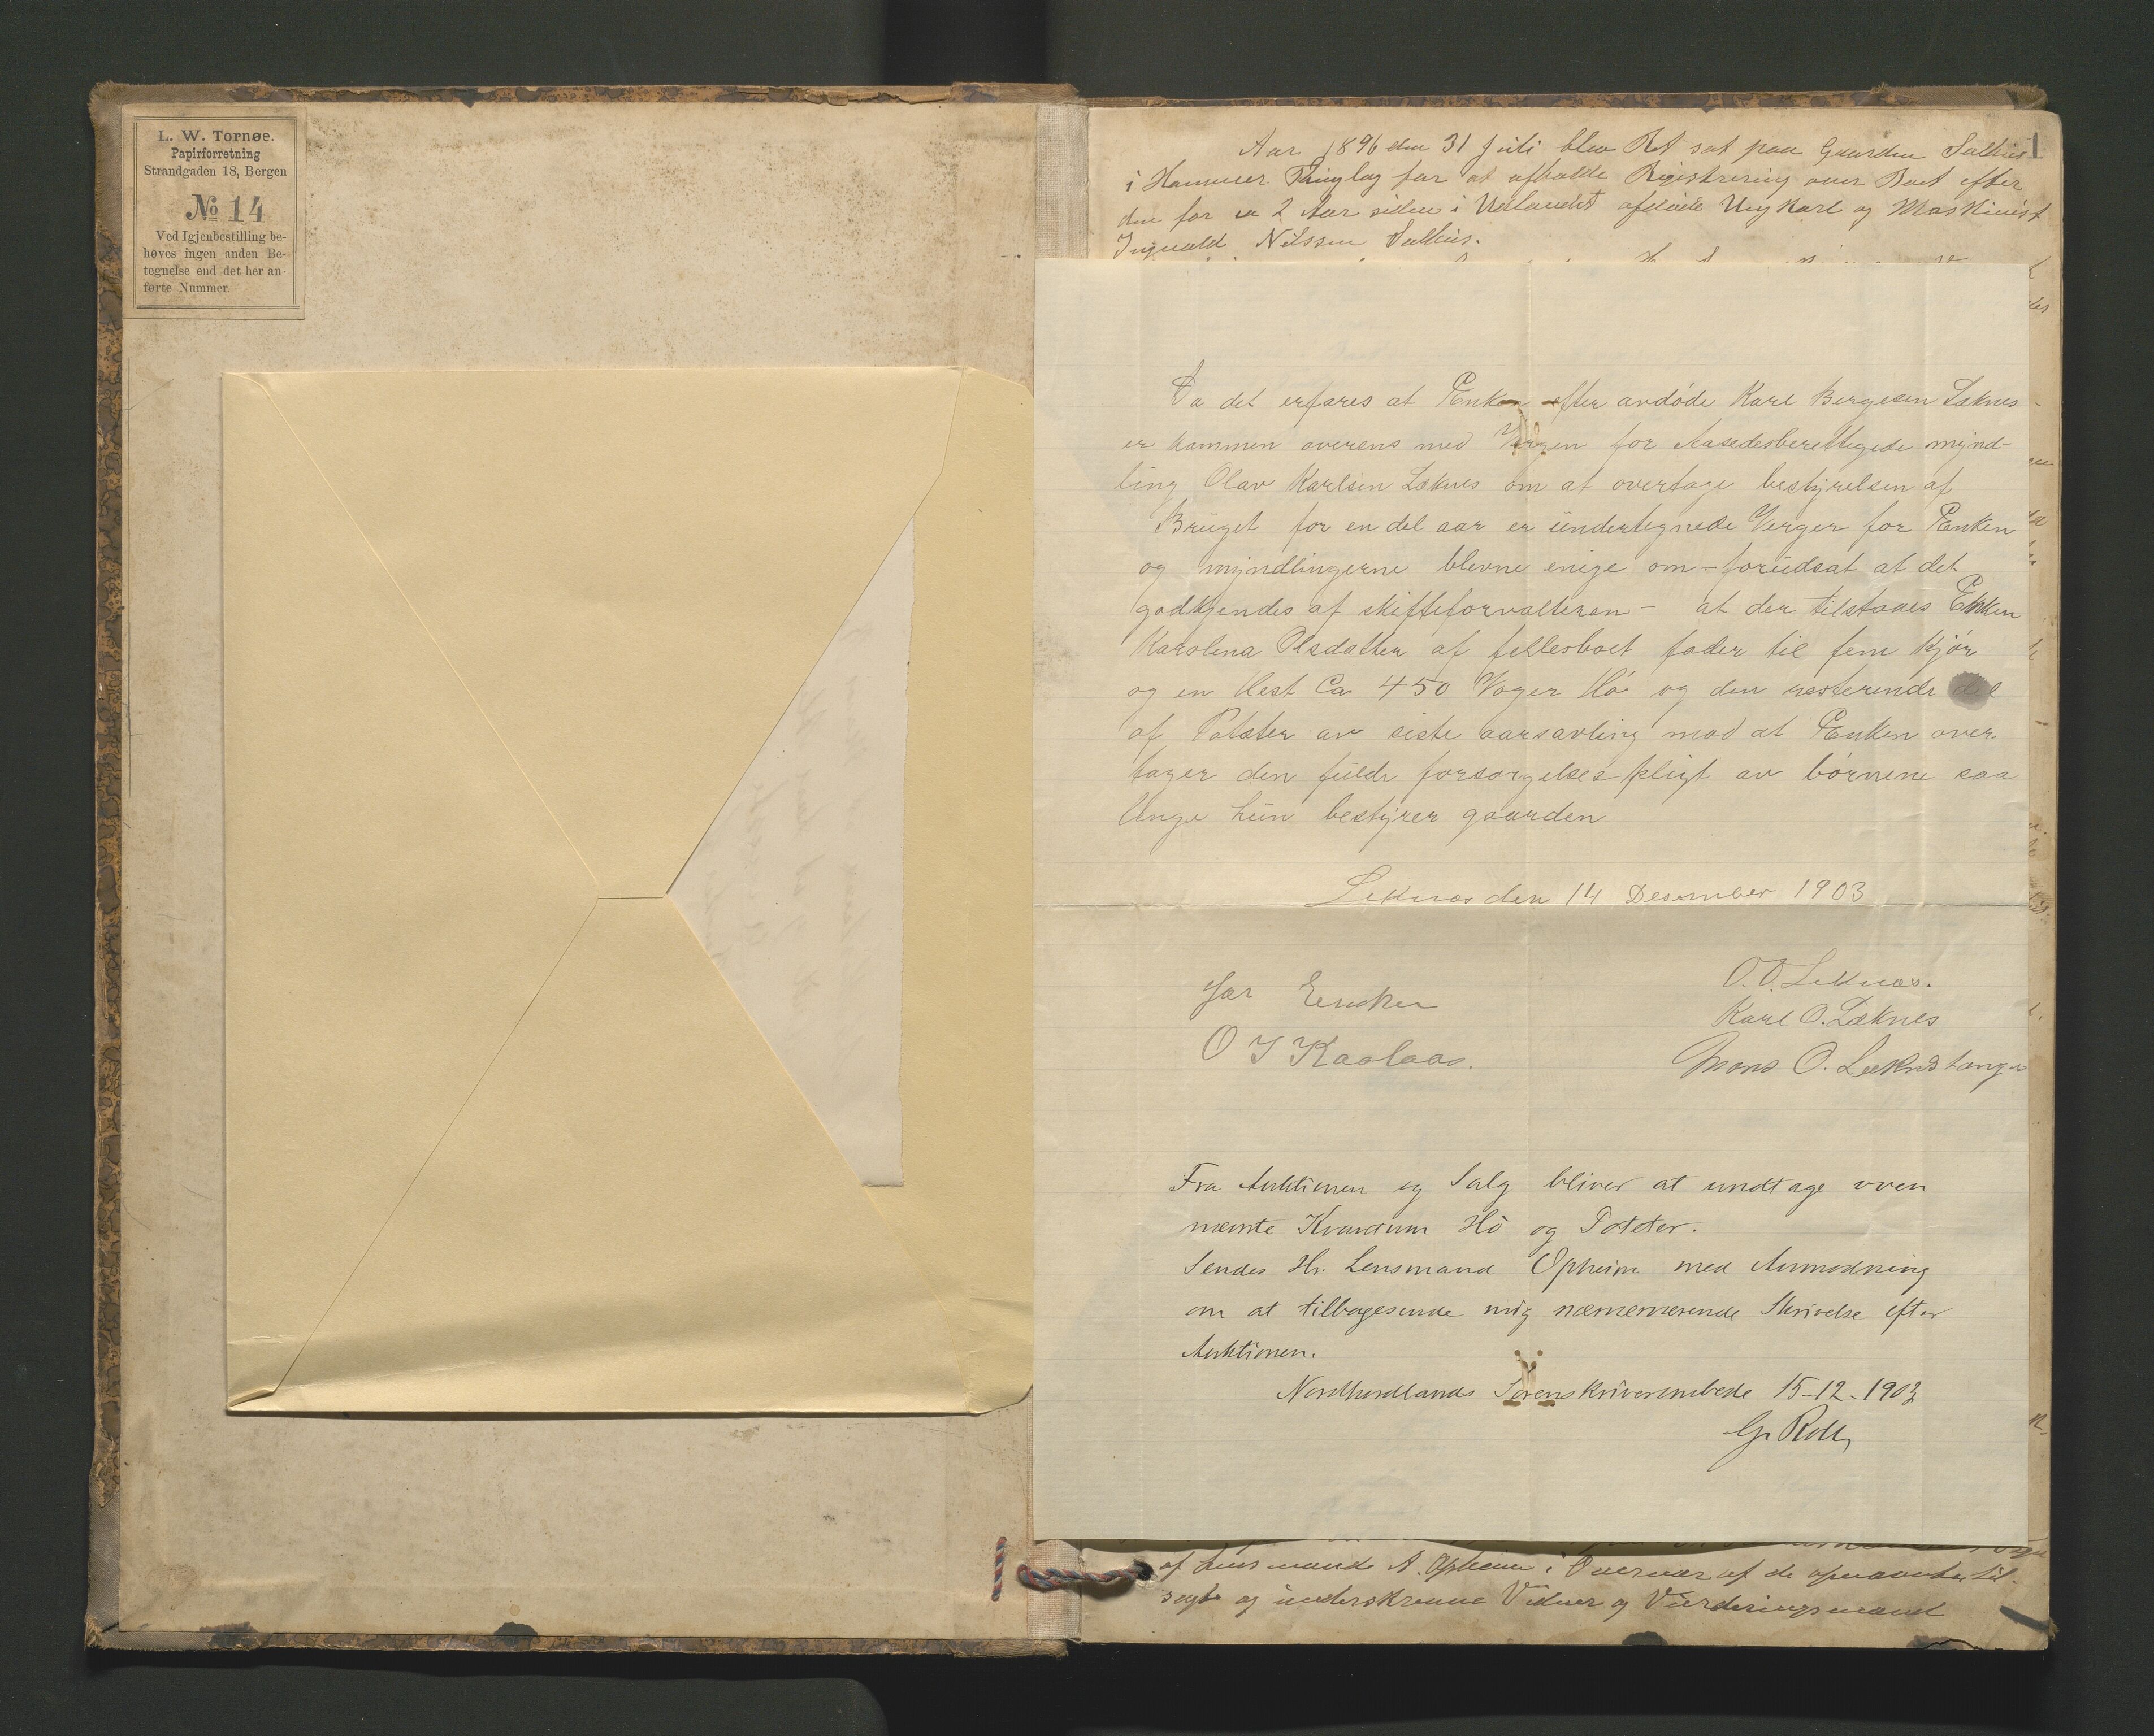 L. W. Tornøe.
Papirforretning
Strandgaden 18, Bergen
No 14
Ved Igjenbestilling be-
høves ingen anden Be-
tegnelse end det her an-
førte Nummer.
1
Aar 1896 den 31 Juli blev Ret sat paa Gaarden Salhus
i Hammer Thinglag for at afholde Registrering over Boet efter
den for ca 2 Aar siden i Udlandet afdøde Ungkarl og Maskinist
Ingvald Nilssen Salhus.
Da det erfares at Enken efter avdøde Karl Bergesen Læknes
er kommen overens med Vergen for Aasædesberettigede mynd-
ling Olav Karlsen Læknes om at overtage bestyrelsen af
Bruget for en del aar er undertegnede Verger for Enken
og myndlingerne blevne enige om – forudsat at det
godkjendes af skifteforvalteren – at der tilstaaes Enken
Karolina Olsdatter af fellesboet foder til fem kjør
og en Hest Ca 450 Voger Hø og den resterende del
af Potæter av siste aarsavling mod at Enken over-
tager den fulde forsørgelsespligt av børnene saa
lenge hun bestyrer gaarden
Leknes den 14 Desember 1903
O. O. Leknes.
for Encken
Karl O. Læknes
O I Kaalaas.
Mons O. Leknes
Fra Auktionen og Salg bliver at undtage oven
nævnte Kvantum Hø og Poteter.
Sendes Hr. Lensmand Opheim med Anmodning
om at tilbagesende mig nærværende Skrivelse efter
Auktionen.
Nordhordlands Sorenskriverembede 15-12-1903
G. Roll
af Lensmand A. Opheim i Overvær af de opnævnte til-
sagte og underskrevne Vidner og Vurderingsmænd